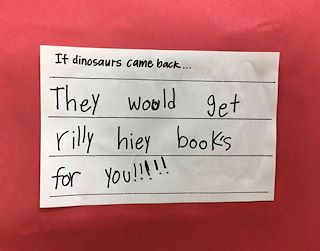 If dinosaurs came back...
They would get
rilly hiey books
for you!!!!!